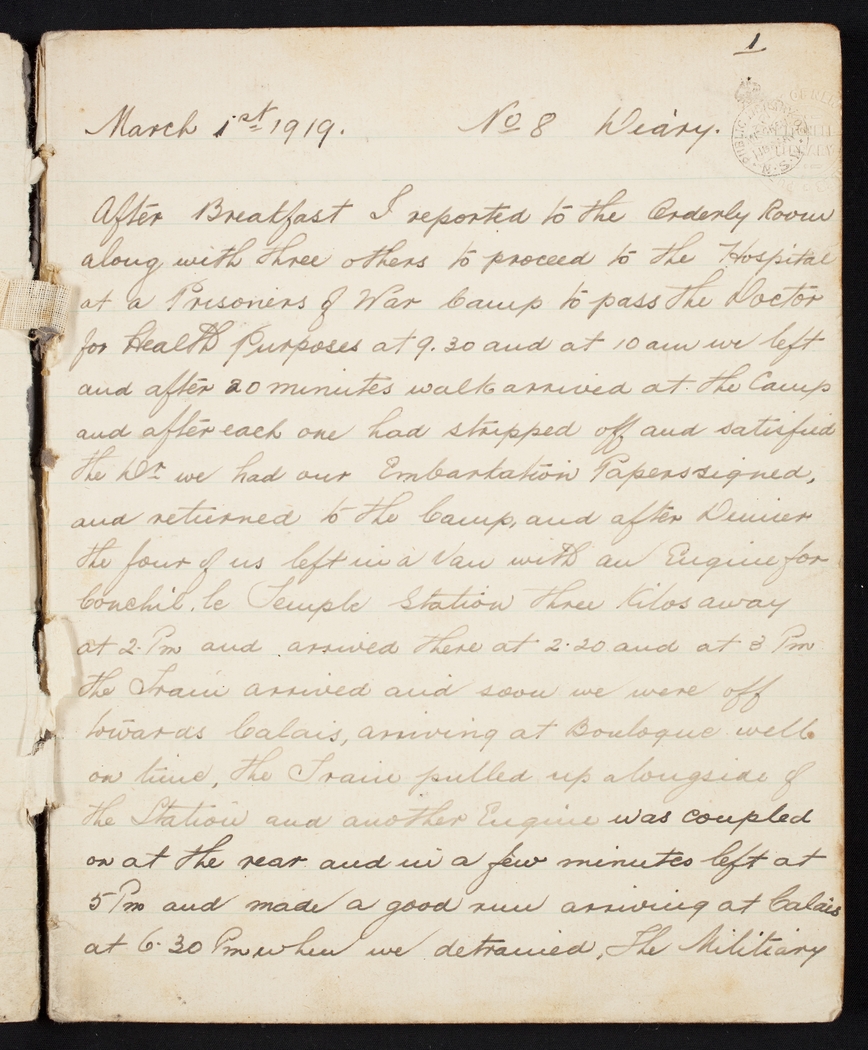 1
March 1st 1919. No 8 Diary.
After Breakfast I reported to the Orderly Room
along with three others to proceed to the Hospital
at a Prisoners of War Camp to pass the Doctor
for Health Purposes at 9.30 and at 10 am we left
and after 20 minutes walk arrived at the Camp
and after each one had stripped off and satisfied
the Dr we had our Embarkation Papers signed,
and returned to the Camp, and after Dinner
the four of us left in a Van with an Engine for
Conchil. le Temple Station three Kilos away
at 2. Pm and arrived there at 2.20 and at 3 Pm
the Train arrived and soon we were off
towards Calais, arriving at Boulogue well
on time, the Train pulled up alongside of
the Station and another Engine was coupled
on at the rear and in a few minutes left at
5 Pm and made a good run arriving at Calais
at 6.30 Pm when we detrained, The Militiary